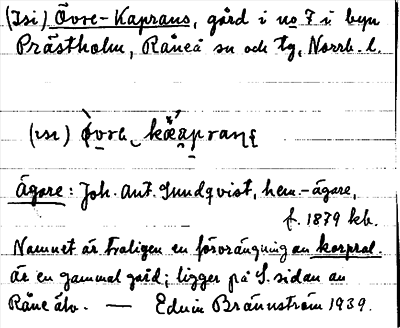 (Isi) Övre-Kaprans, gård i no 7 i byn
Prästholm, Råneå sn och tg, Norrb. l.
(ısı)
Ägare: Joh. Ant. Sundqvist, hem.-ägare,
f. 1879 kb.
Namnet är troligen en förvrängning av korpral.
Är en gammal gård; ligger på S. sidan av
Råne älv. — Edvin Brännström 1939.